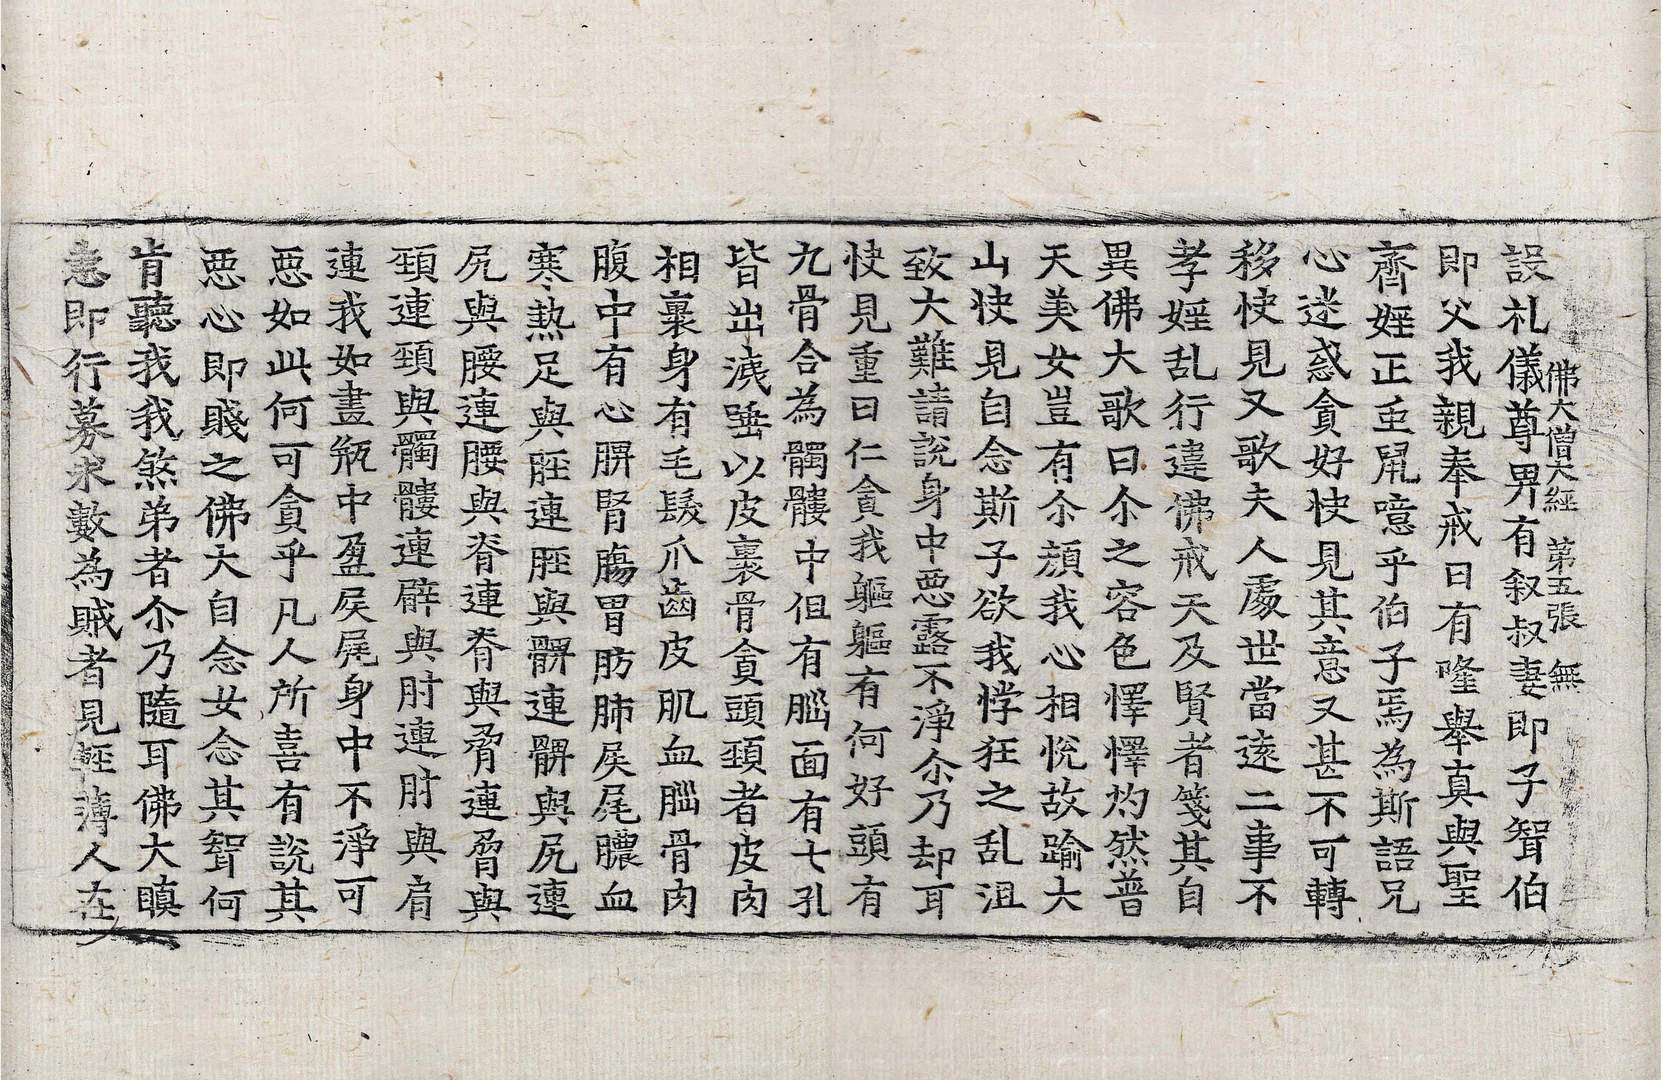 佛大僧大經 第五張 無
設礼儀尊畀有叙叔妻即子聟伯
即父我親奉戒日有隆舉真與聖
齊婬正重凥噫乎伯子焉為斯語兄
心迷惑貪好快見其意又甚不可轉
移快見又歌夫人處世當遠二事不
孝婬乱行違佛戒天及賢者箋其自
異佛大歌曰尒之容色懌懌灼然普
天美女豈有尒顔我心相悅故踰大
山快見自念斯子欲我悖狂之乱沮
致大難請説身中惡露不淨尒乃却耳
快見重曰仁貪我軀軀有何好頭有
九骨合為髑髏中但有腦面有七孔
皆出洟唾以皮裹骨貪頭頸者皮肉
相裹身有毛髮爪齒皮肌血腦骨肉
腹中有心脾腎腸胃肪肺屎尾膿血
寒熱足與脛連脛與髀連髀與尻連
尻與腰連腰與脊連脊與脅連脅與
頸連頸與髑髏連臂與肘連肘與肩
連我如畫瓶中盈屎尾身中不淨可
惡如此何可貪乎凡人所喜有説其
惡心即賤之佛大自念女念其聟何
肯聽我我煞弟者尒乃隨耳佛大瞋
恚即行募求數為賊者見輕薄人在